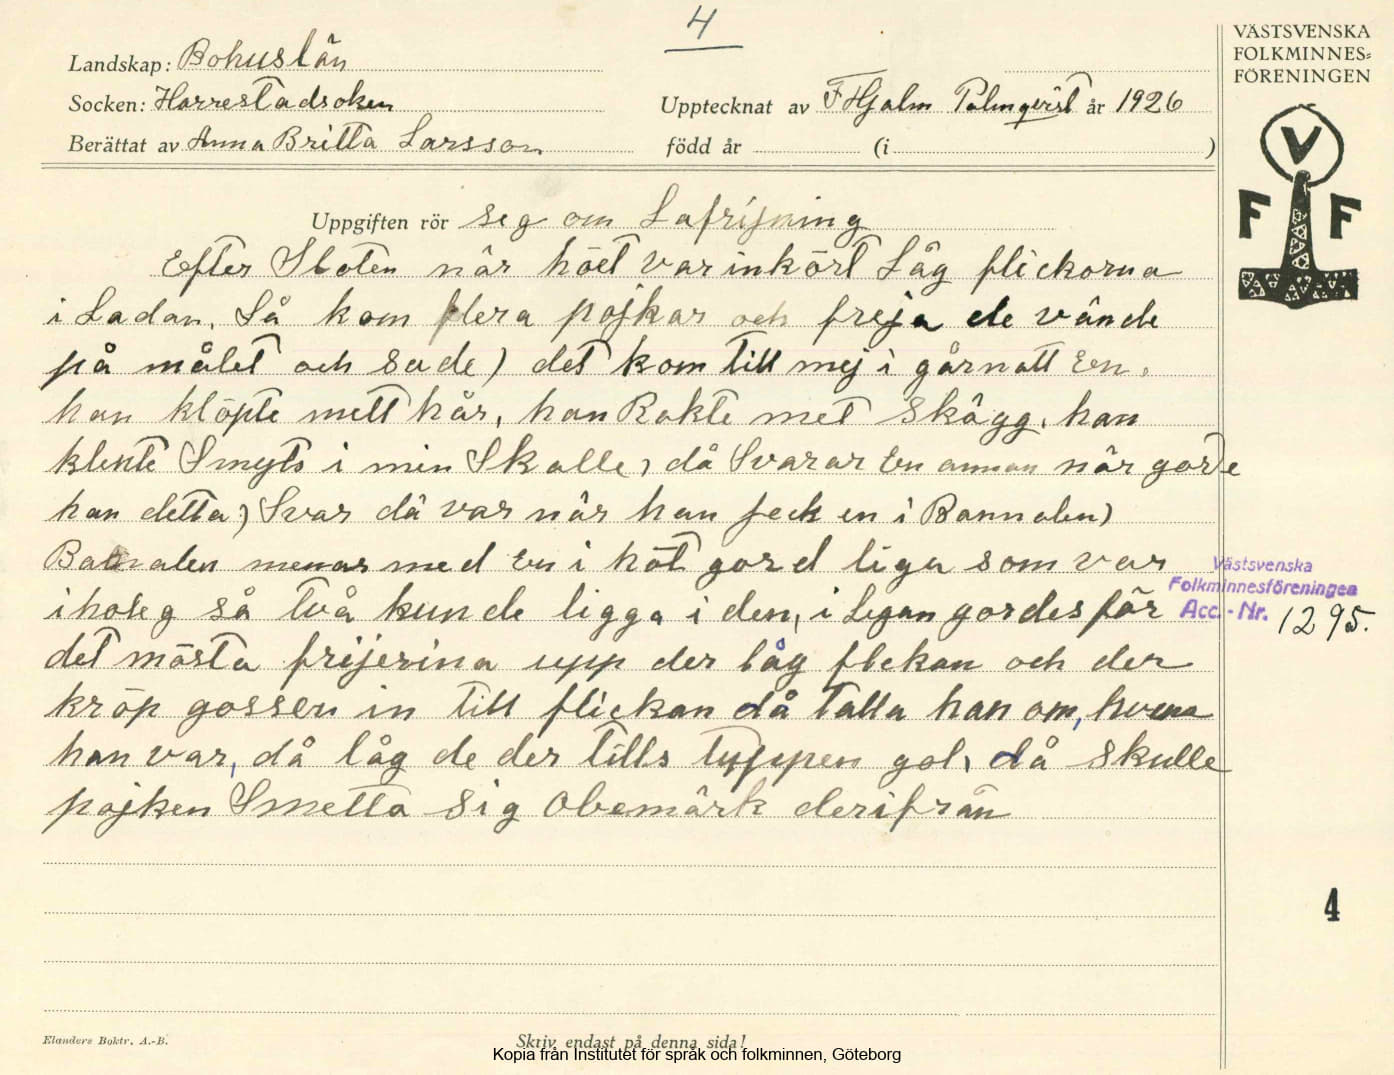 4
VÄSTSVENSKA
FOLKMINNES=
FÖRENINGEN
Landskap: Bohuslän
Socken: Harrestadsoken
Upptecknat av F Hjalm Palmqvist år 1926
Berättat av Anna Britta Larsson
född år (i )
V
F F
Uppgiften rör seg om Lafrijning
Efter Sloten når höet var inkört Låg flickorna
i Ladan. Så kom flera pojkar och freja de vände
på målet och sade) det kom till mej i går natt En,
han klöpte mett hår, han Rakte met Skägg, han
klente Smyts i min Skalle, då Svarar En annan når gorde
han detta) Svar då var når han feck en i Bannalen)
Bannalen menas med En i höt gord liga som var
iholig så två kunde ligga i den, i Legan gordes får
det mästa frijerina upp der låg flekan och der
kröp gossen in till flickan då talla han om, hvem
han var, då låg de der tills tuppen gol, då skulle
pojken Smetta sig Obemärk derifrån
Västsvenska
Folkminnesföreningen
Acc.-Nr. 1295.
4
Elanders Boktr. A.-B.
Skriv endast på denna sida!
Kopia från Institutet för språk och folkminnen, Göteborg